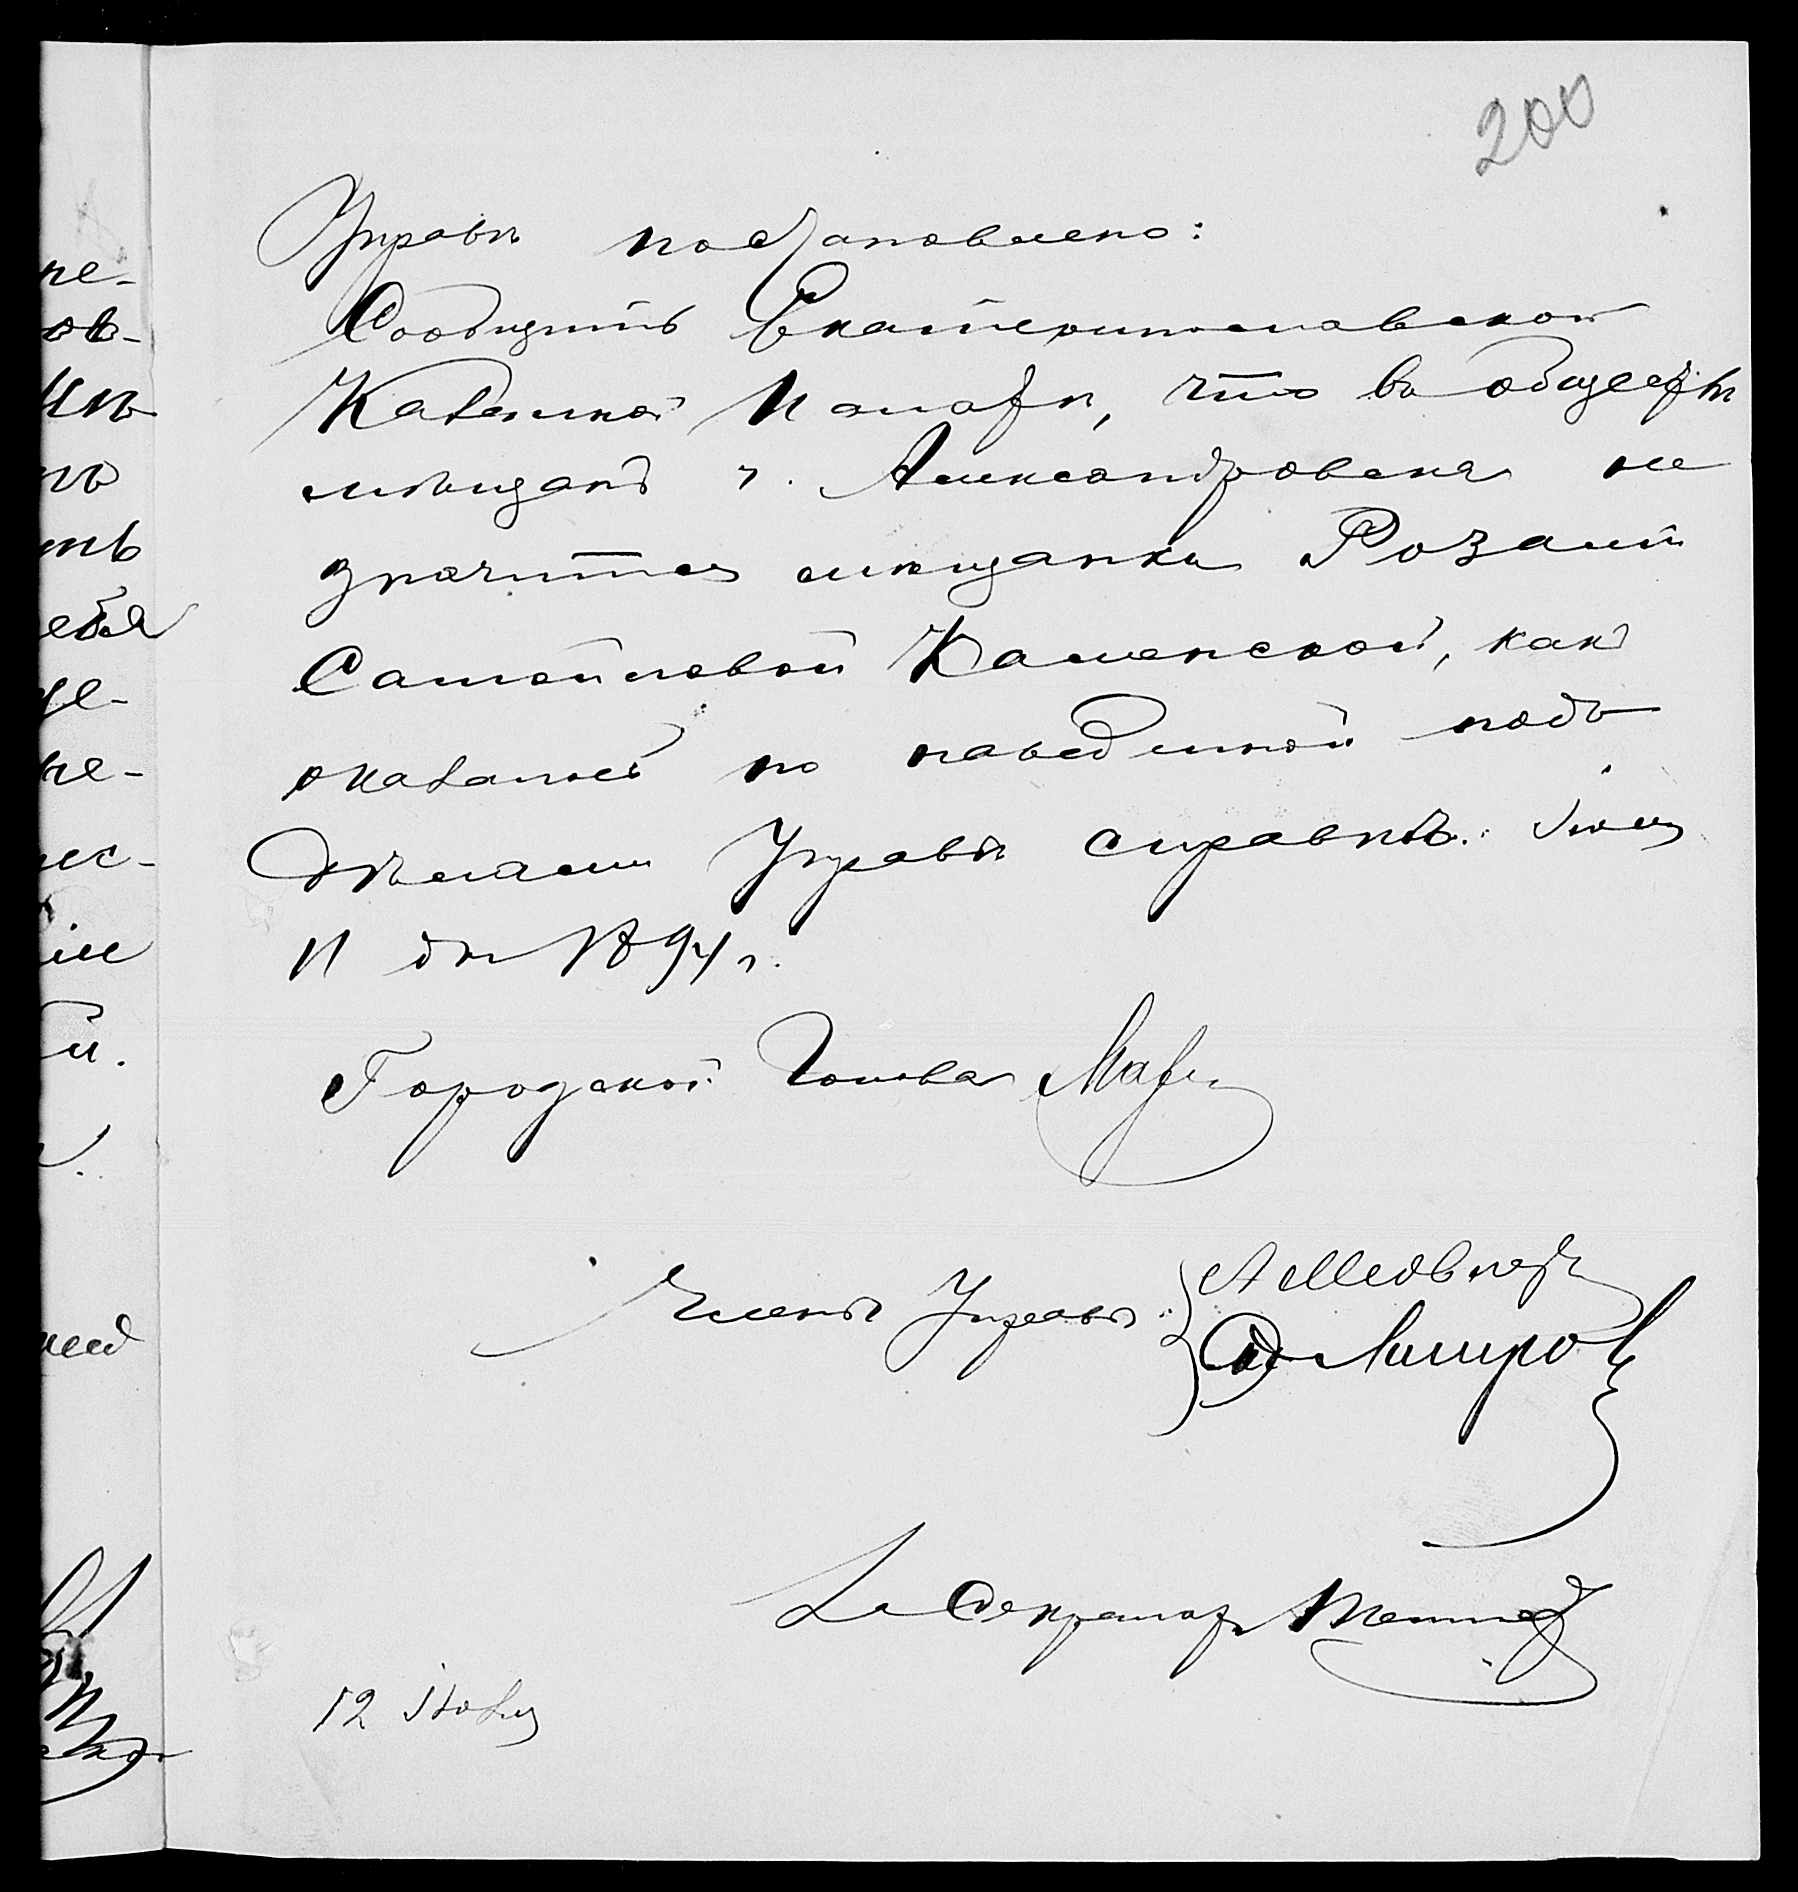 200
Управѣ постановлено:
Сообщить Екатеринославской
Казенной Палатѣ, что въ обществѣ
мѣщанъ г. Александровска не
значится мѣщанки Розалии
Самойловой Каменской, какъ
оказалось по наведенной подъ
дѣлами Управы справкѣ. Iюня
11 дня 1894 г.
Городской Голова
Члены Управы
А Медведь
За Секретаря
12 Iюня